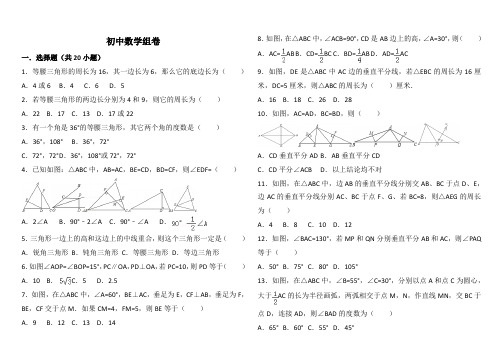 初中数学组卷
一．选择题（共20小题）
1．等腰三角形的周长为16，其一边长为6，那么它的底边长为（　　）
A．4或6　B．4　C．6　D．5
2．若等腰三角形的两边长分别为4和9，则它的周长为（　　）
A．22　B．17　C．13　D．17或22
3．有一个角是36°的等腰三角形，其它两个角的度数是（　　）
A．36°，108°　B．36°，72°
C．72°，72°D．36°，108°或72°，72°
4．已知如图：△ABC中，AB=AC，BE=CD，BD=CF，则∠EDF=（　　）
A．2∠A　B．90°﹣2∠A　C．90°﹣∠A　D．90°﹣1/2∠A
5．三角形一边上的高和这边上的中线重合，则这个三角形一定是（　　）
A．锐角三角形 B．钝角三角形 C．等腰三角形 D．等边三角形
6.如图∠AOP=∠BOP=15°，PC∥OA，PD⊥OA，若PC=10，则PD等于（　　）
A．10　B．5√3　C．5　D．2.5
7．如图，在△ABC中，∠A=60°，BE⊥AC，垂足为E，CF⊥AB，垂足为F，
BE，CF交于点M．如果CM=4，FM=5，则BE等于（　　）
A．9　B．12　C．13　D．14
8．如图，在△ABC中，∠ACB=90°，CD是AB边上的高，∠A=30°，则（　　）
A．AC=1/2AB B．CD=1/2BC C．BD=1/4AB D．AD=1/2AC
9．如图，DE是△ABC中AC边的垂直平分线，若△EBC的周长为16厘
米，DC=5厘米，则△ABC的周长为（　　）厘米．
A．16　B．18　C．26　D．28
10．如图，AC=AD，BC=BD，则（　　）
A．CD垂直平分AD B．AB垂直平分CD
C．CD平分∠ACB　D．以上结论均不对
11．如图，在△ABC中，边AB的垂直平分线分别交AB、BC于点D、E，
边AC的垂直平分线分别AC、BC于点F、G．若BC=8，则△AEG的周长
为（　　）
A．4　B．8　C．10　D．12
12．如图，∠BAC=130°，若MP和QN分别垂直平分AB和AC，则∠PAQ
等于（　　）
A．50°B．75°C．80°D．105°
13．如图，在△ABC中，∠B=55°，∠C=30°，分别以点A和点C为圆心，
大于1/2AC的长为半径画弧，两弧相交于点M，N，作直线MN，交BC于
点D，连接AD，则∠BAD的度数为（　　）
A．65°B．60°C．55°D．45°